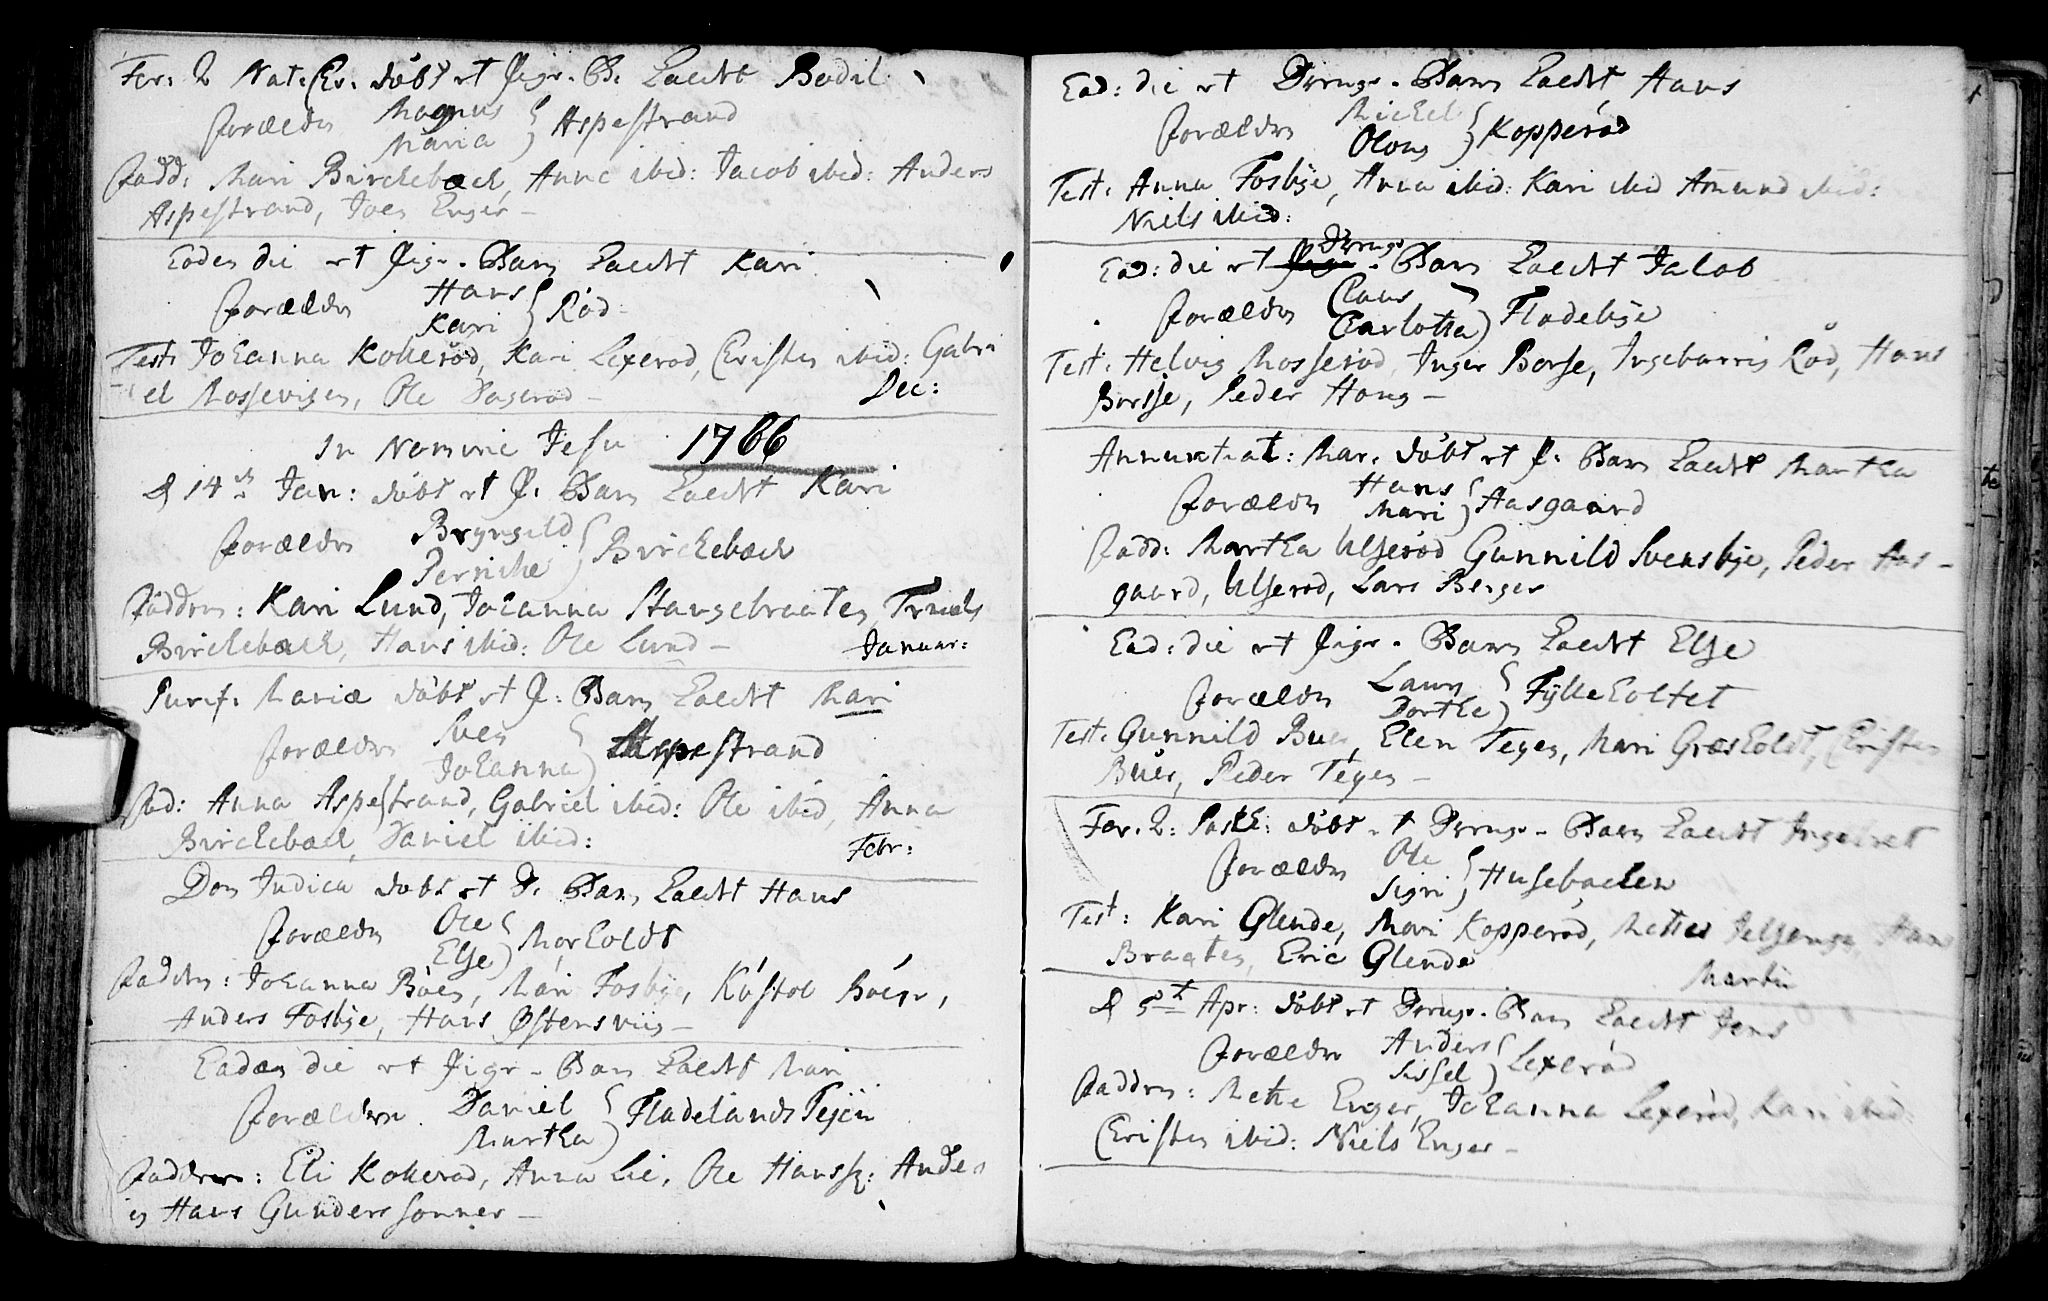 Fer: 2 Nat: Chr. döbt et Pige-B. kaldt Bodil
forældre Magnus
Maria } Aspestrand
fadd: Mari Birchebæch, Anne ibid: Jacob ibid: Anders
Aspestrand, Joen Enger –
Eoden die et Pige-Barn kaldt Kari
forældre Hans
Kari } Röd
Test: Johanna Kokeröd, Kari Lexeröd, Christen ibid: Gabri
el Mossevigen, Ole Hageröd –
Dec:
In Nomine Jesu 1766
d 14de Jan: döbt et P. Barn kaldt Kari
forældre Bryngild
Perniche } Birchebæch
faddere: Kari Lund, Johanna Stangebraaten, Truels
Birchebæch, Hans ibid: Ole Lund –
Januar:
Purif. Mariæ döbt et P. Barn kaldt Mari
forældre Sven
Johanna } Aspestrand
fad: Anna Aspestrand, Gabriel ibid: Ole ibid, Anna
Birchebæch, Daniel ibid:
Febr:
Dom Judica döbt et D. Barn kaldt Hans
forældre Ole
Else } Morholdt
faddere: Johanna Böen, Mari Fosbye, Kästol Böen,
Anders Fosbye, Hans Östensviig –
Eadem die et Pige-Barn kaldt Mari
forældre Daniel
Martha } Fladelands Tejen
faddere: Eli Kokeröd, Anna Lie, Ole Hanss: Anders
og Hans Gunderssönner –
Ead: die et Drenge-Barn kaldt Hans
forældre Michel
Oloug } Kopperöd
Test: Anna Fosbye, Anna ibid: Kari ibid Amund ibid:
Niels ibid:
Ead: die et Drenge-Barn kaldt Jacob
forældre Claus
Carlotta } Fladebye
Test: Helvig Mosseröd, Inger Borse, Ingebarrig Röd, Hans
Borsse, Peder Houg –
Annuntiat: Mar. döbt et P. Barn kaldt Martha
forældre Hans
Mari } Aasgaard
fadd: Martha Ulseröd Gunnild Svensbye, Peder Aas-
gaard, Ulseröd, Lars Berger
Ead: die et Pige-Barn kaldt Else
forældre Laurs
Dorthe } Fylleholtet
Test: Gunnild Buer, Elen Tegen, Mari Græsholdt, Christen
Buer, Peder Tegen –
Fer. 2: Pask: döbt et Drenge-Barn kaldt Ingebret
forældre Ole
Sigri } Husebacken
Test: Kari Glende, Mari Kopperöd, Hans
Braaten, Eric Glende
Martii
d 5t Apr: döbt et Drenge-Barn kaldt Jens
forældre Anders
Sissel } Lexeröd
faddere: Mette Enger, Johanna Lexeröd, Kari ibid:
Christen ibid: Niels Enger –